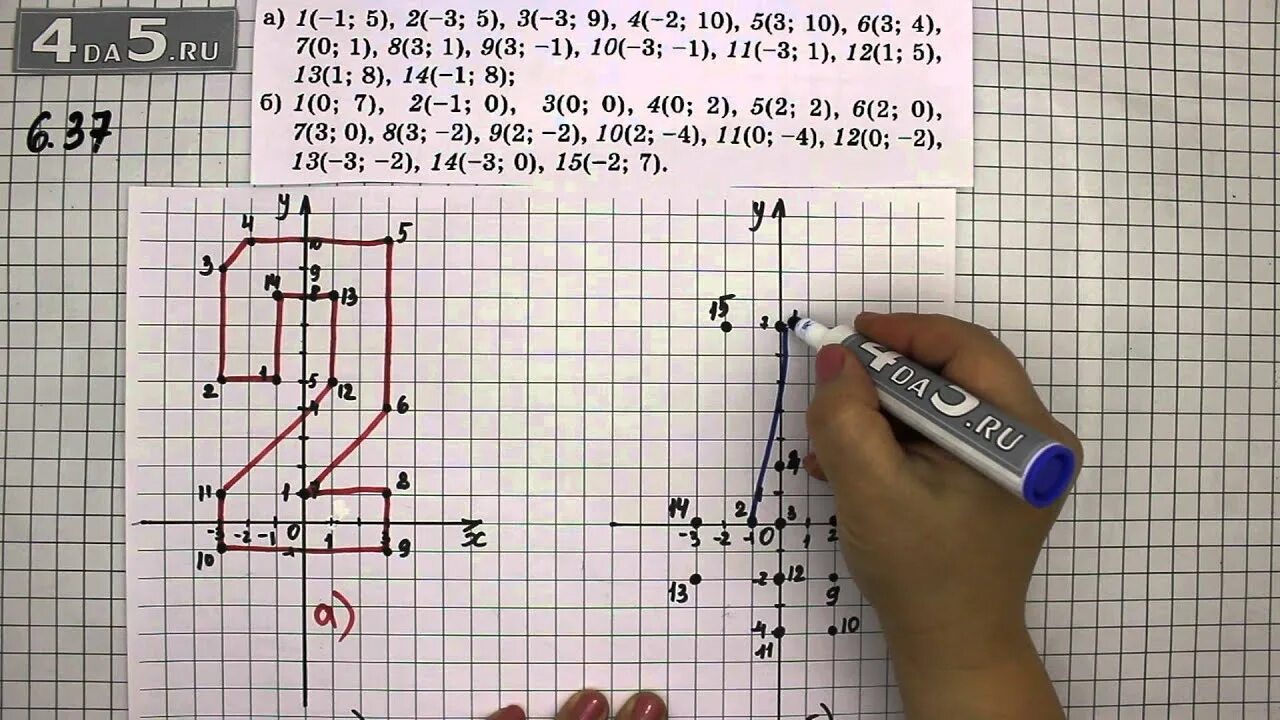 4DA5.RU
6.37
а) 1(−1; 5), 2(−3; 5), 3(−3; 9), 4(−2; 10), 5(3; 10), 6(3; 4),
7(0; 1), 8(3; 1), 9(3; −1), 10(−3; −1), 11(−3; 1), 12(1; 5),
13(1; 8), 14(−1; 8);
б) 1(0; 7), 2(−1; 0), 3(0; 0), 4(0; 2), 5(2; 2), 6(2; 0),
7(3; 0), 8(3; −2), 9(2; −2), 10(2; −4), 11(0; −4), 12(0; −2),
13(−3; −2), 14(−3; 0), 15(−2; 7).
y
4 5
3 9
14 8 13
2 1 5 12
4 6
11 1 7 8
-3 -2 -1 0 1 3 x
10 -1 9
а)
y
15 7
4DA5.RU
14 2 3
-3 -2 -1 0 1 2
13 -2 12 9
-4 10
11